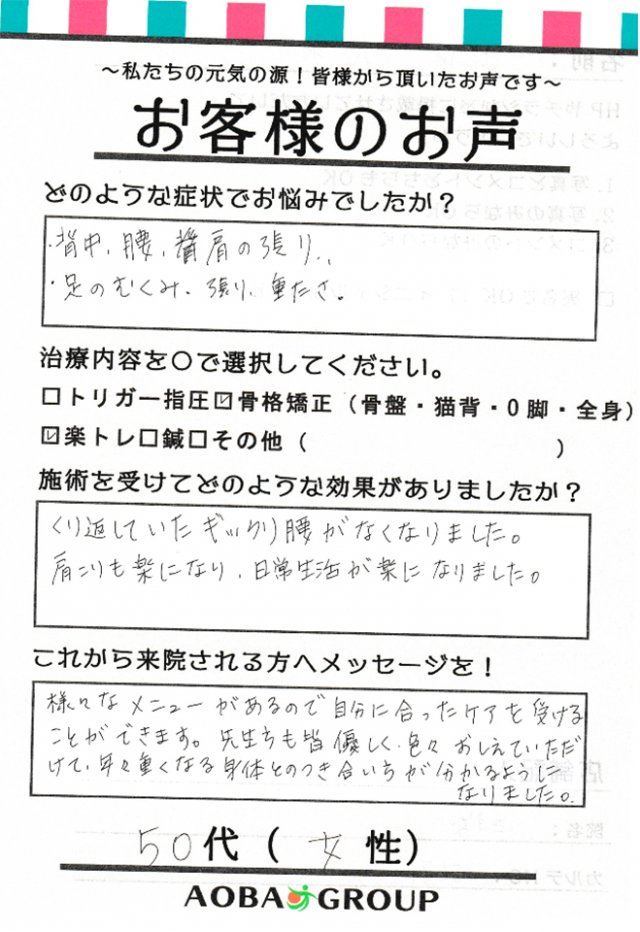 〜私たちの元気の源！皆様から頂いたお声です〜
お客様のお声
どのような症状でお悩みでしたか？
・背中、腰、肩の張り、、
・足のむくみ、張り、重たさ。
治療内容を〇で選択してください。
□トリガー指圧☑骨格矯正（骨盤・猫背・O脚・全身）
☑楽トレ□鍼□その他（　　　　　　　　　　）
施術を受けてどのような効果がありましたか？
くり返していたギックリ腰がなくなりました。
肩こりも楽になり、日常生活が楽になりました。
これから来院される方へメッセージを！
様々なメニューがあるので自分に合ったケアを受ける
ことができます。先生方も皆優しく、色々おしえていただ
けて、年々重くなる身体とのつき合い方が分かるように
なりました。
50代（女性）
AOBA GROUP